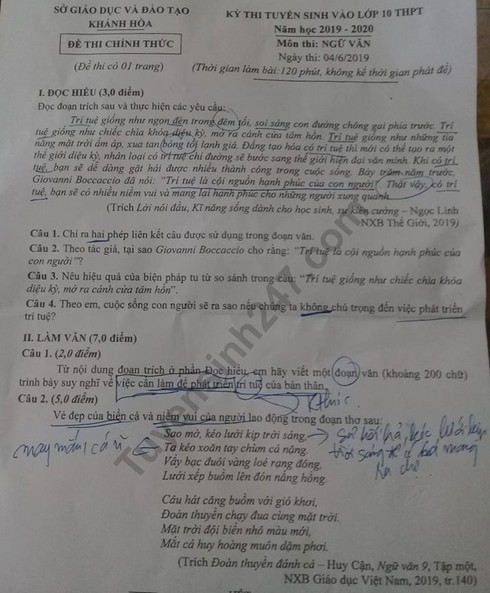 SỞ GIÁO DỤC VÀ ĐÀO TẠO
KHÁNH HÒA
ĐỀ THI CHÍNH THỨC
(Đề thi có 01 trang)
KỲ THI TUYỂN SINH VÀO LỚP 10 THPT
Năm học 2019 - 2020
Môn thi: NGỮ VĂN
Ngày thi: 04/6/2019
(Thời gian làm bài: 120 phút, không kể thời gian phát đề)
I. ĐỌC HIỂU (3,0 điểm)
Đọc đoạn trích sau và thực hiện các yêu cầu:
Trí tuệ giống như ngọn đèn trong đêm tối, soi sáng con đường chông gai phía trước. Trí
tuệ giống như chiếc chìa khóa diệu kỳ, mở ra cánh cửa tâm hồn. Trí tuệ giống như những tia
nắng mặt trời ấm áp, xua tan bóng tối lạnh giá. Đấng tạo hóa có trí tuệ thì mới có thể tạo ra một
thế giới diệu kỳ, nhân loại có trí tuệ chỉ đường sẽ bước sang thế giới hiện đại văn minh. Khi có trí
tuệ, bạn sẽ dễ dàng gặt hái được nhiều thành công trong cuộc sống. Bảy trăm năm trước,
Giovanni Boccaccio đã nói: “Trí tuệ là cội nguồn hạnh phúc của con người”. Thật vậy, có trí
tuệ, bạn sẽ có nhiều niềm vui và mang lại hạnh phúc cho những người xung quanh.
(Trích Lời nói đầu, Kĩ năng sống dành cho học sinh, sự kiên cường – Ngọc Linh
NXB Thế Giới, 2019)
Câu 1. Chỉ ra hai phép liên kết câu được sử dụng trong đoạn văn.
Câu 2. Theo tác giả, tại sao Giovanni Boccaccio cho rằng: “Trí tuệ là cội nguồn hạnh phúc của
con người”?
Câu 3. Nêu hiệu quả của biện pháp tu từ so sánh trong câu: “Trí tuệ giống như chiếc chìa khóa
diệu kỳ, mở ra cánh cửa tâm hồn”.
Câu 4. Theo em, cuộc sống con người sẽ ra sao nếu chúng ta không chú trọng đến việc phát triển
trí tuệ?
II. LÀM VĂN (7,0 điểm)
Câu 1. (2,0 điểm)
Từ nội dung đoạn trích ở phần Đọc hiểu, em hãy viết một đoạn văn (khoảng 200 chữ)
trình bày suy nghĩ về việc cần làm để phát triển trí tuệ của bản thân.
Câu 2. (5,0 điểm)
Vẻ đẹp của biển cả và niềm vui của người lao động trong đoạn thơ sau:
Sao mờ, kéo lưới kịp trời sáng,
Ta kéo xoăn tay chùm cá nặng.
Vẩy bạc đuôi vàng lóe rạng đông,
Lưới xếp buồm lên đón nắng hồng.
Câu hát căng buồm với gió khơi,
Đoàn thuyền chạy đua cùng mặt trời.
Mặt trời đội biển nhô màu mới,
Mắt cá huy hoàng muôn dặm phơi.
(Trích Đoàn thuyền đánh cá – Huy Cận, Ngữ văn 9, Tập một,
NXB Giáo dục Việt Nam, 2019, tr.140)
Tuyensinh247.com